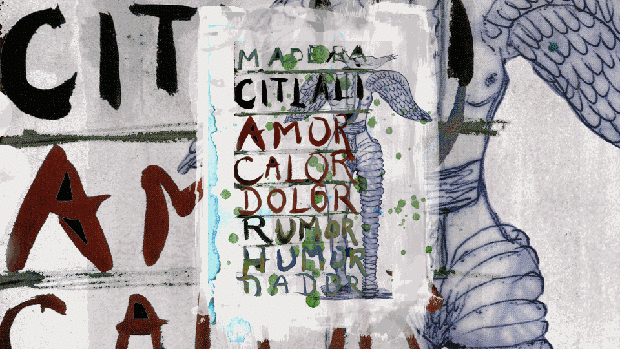 CIT
AM
CA
MADERA
CITLALI
AMOR
CALOR
DOLOR
RUMOR
HUMOR